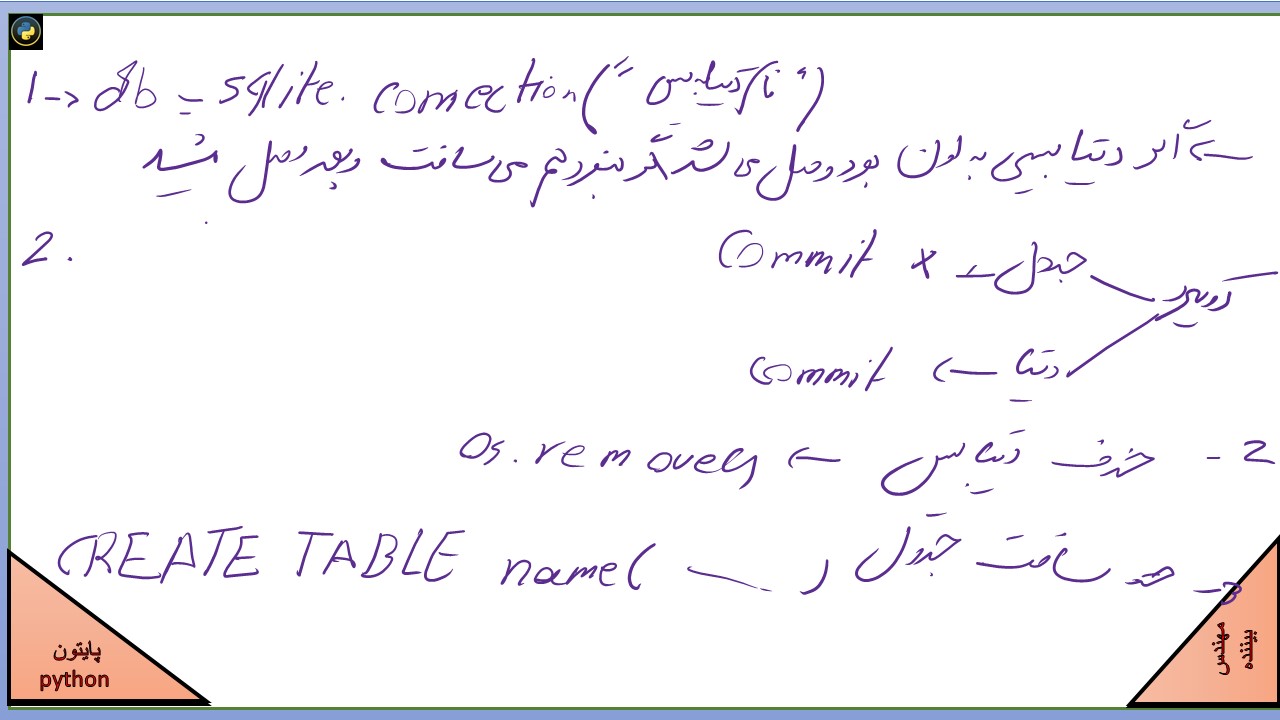 1-> db = sqlite. connection("نام دیتابیس")
← اگر دیتا بیسی به اون بود وصل می شد اگر نبود هم می ساخت و بعد وصل میشد
2.
commit × ← جدول
کوییری
commit ← دیتا
2 - حذف دیتابیس ← os.remove()
3 - ساخت جدول CREATE TABLE name( )
پایتون
python
مهندس
بیننده